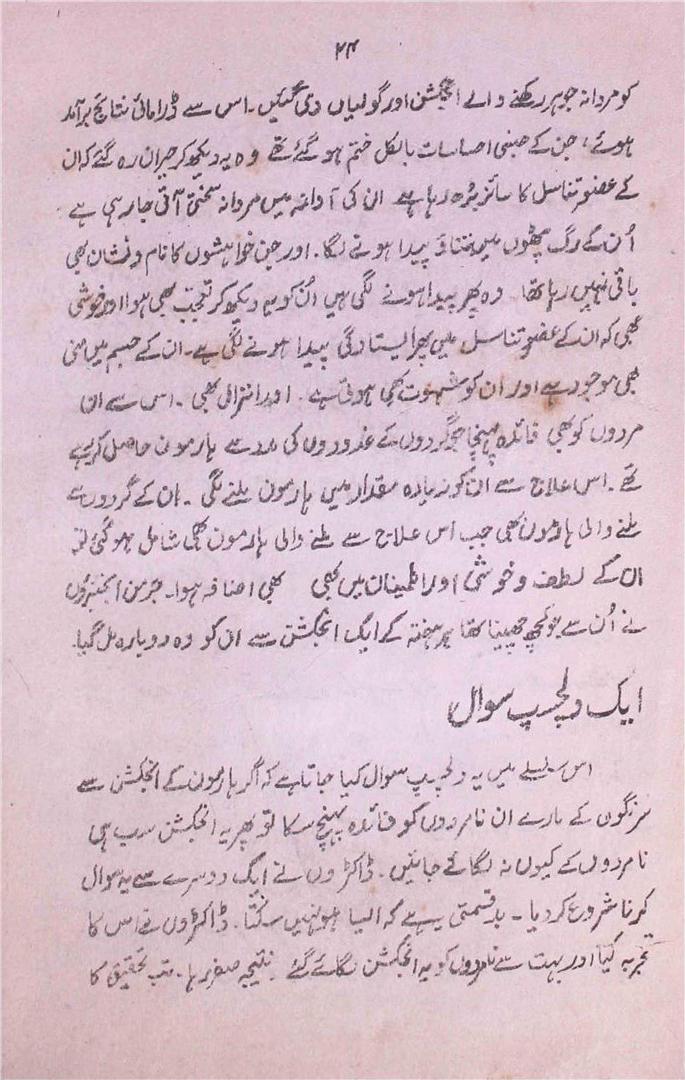 ۲۴
کو مردانہ جوہر رکھنے والے انجکشن اور گولیاں دی گئیں۔ اس سے ڈرامائی نتائج برآمد
ہوئے، جن کے جنسی احساسات بالکل ختم ہو گئے تھے وہ یہ دیکھ کر حیران رہ گئے کہ ان
کے عضو تناسل کا سائز بڑھ رہا ہے ان کی آواز میں مردانہ سختی آتی جا رہی ہے
اُن کے رگ پٹھوں میں تناؤ پیدا ہونے لگا۔ اور جن خواہشوں کا نام و نشان بھی
باقی نہیں رہا تھا۔ وہ پھر پیدا ہونے لگی ہیں اُن کو یہ دیکھ کر تعجب بھی ہوا اور خوشی
بھی کہ ان کے عضو تناسل میں پھر ایستادگی پیدا ہونے لگی ہے۔ ان کے جسم میں منی
بھی موجود ہے اور ان کو شہوت بھی ہوتی ہے۔ اور انزال بھی۔ اس سے ان
مردوں کو بھی فائدہ پہنچا جو گردوں کے غدودوں کی مدد سے ہارمون حاصل کر رہے
تھے۔ اس علاج سے ان کو زیادہ مقدار میں ہارمون ملنے لگی۔ ان کے گردوں سے
ملنے والی ہارمون بھی جب اس علاج سے ملنے والی ہارمون بھی شامل ہو گئی تو
ان کے لطف و خوشی اور اطمینان میں بھی بھی اضافہ ہوا۔ جرمن انجینئروں
نے اُن سے جو کچھ چھینا تھا ہر ہفتہ کے ایک انجکشن سے ان کو وہ دوبارہ مل گیا۔
ایک دلچسپ سوال
اس سلسلے میں یہ دلچسپ سوال کیا جاتا ہے کہ اگر ہارمون کے انجکشن سے
سرنگوں کے مارے ان نامردوں کو فائدہ پہنچ سکا تو پھر یہ انجکشن سب ہی
نامردوں کے کیوں نہ لگائے جائیں۔ ڈاکٹروں نے ایک دوسرے سے یہ سوال
کرنا شروع کر دیا۔ بدقسمتی یہ ہے کہ ایسا ہو نہیں سکتا۔ ڈاکٹروں نے اس کا
تجربہ کیا اور بہت سے نامردوں کو یہ انجکشن لگائے گئے۔ نتیجہ صفر رہا۔ تب تحقیق کا